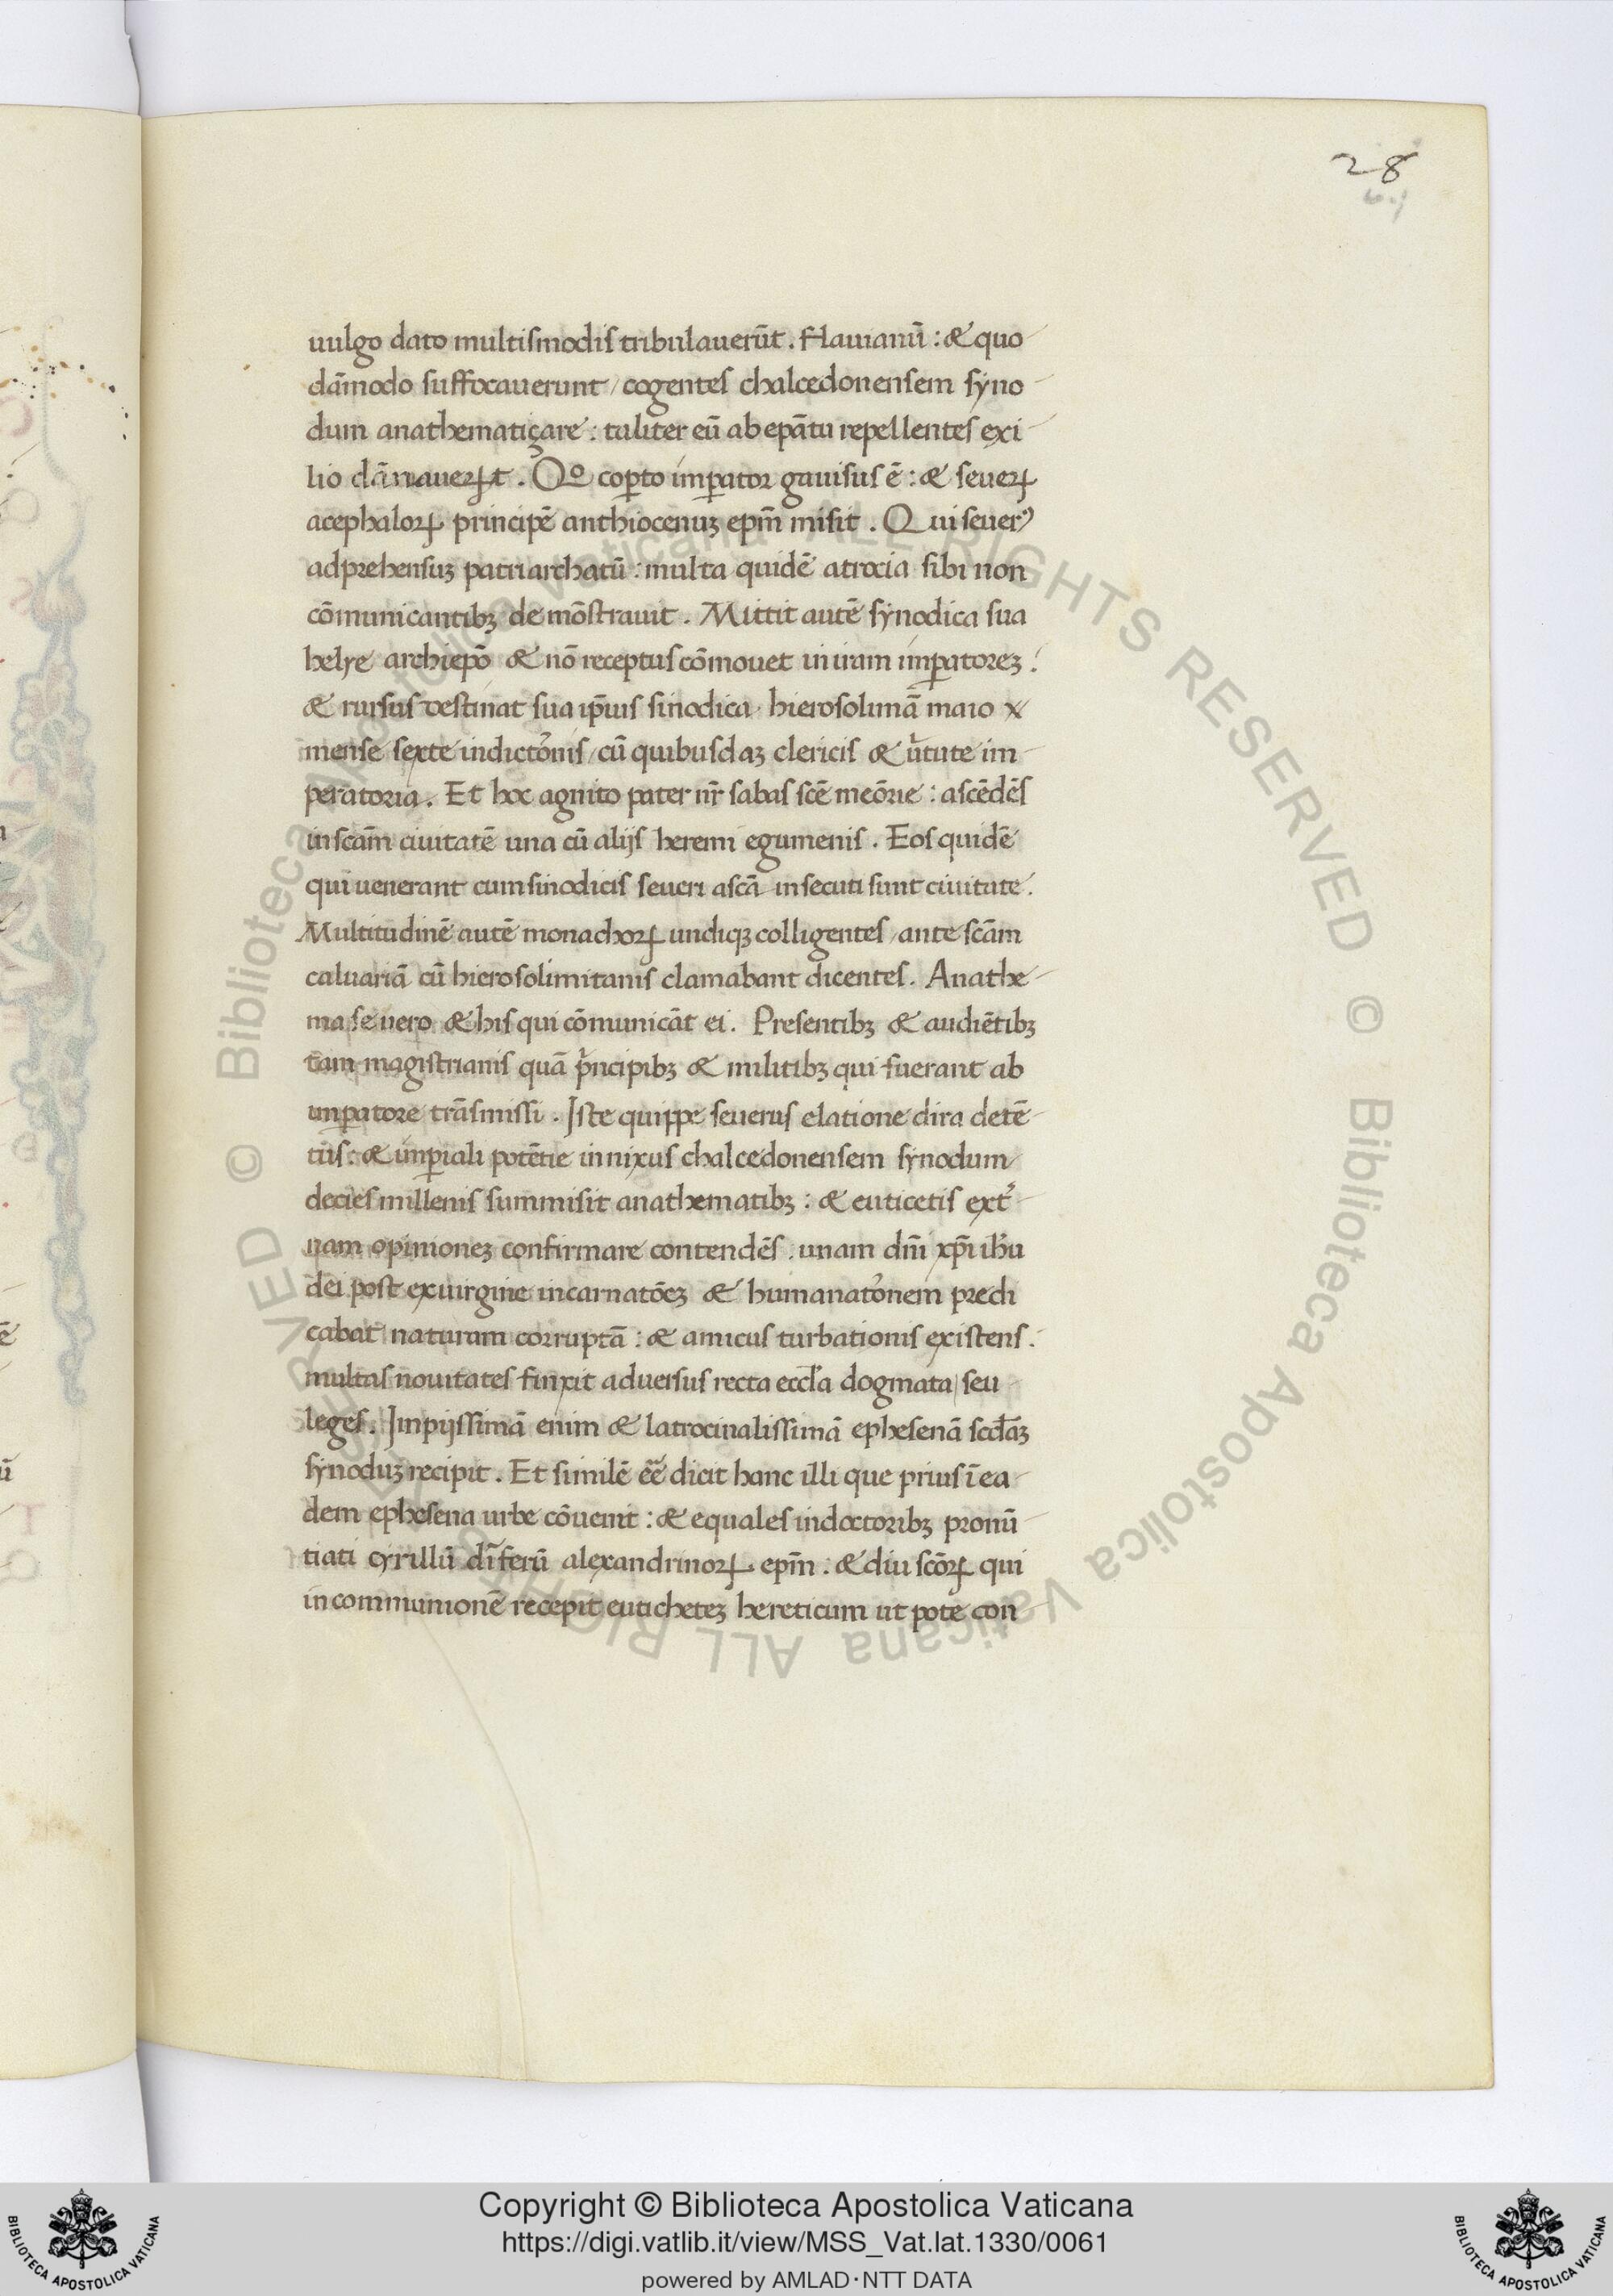 28
uulgo dato multismodis tribulauerūt. Flauianū: & quo
dāmodo suffocauerunt / cogentes chalcedonensem syno
dum anathematiçare: taliter eū ab epātu repellentes exi
lio dānauerꝝt. Qº coꝑto imꝑator gauisus ē: & seuerꝝ
acephalorꝝ principē anthiocenuꝫ epm̄ misit. Qui seuerꝰ
adprehensuꝫ patriarchatū: multa quidē atrocia sibi non
cōmunicantibꝫ de mōstrauit. Mittit autē synodica sua
helye archiepō & nō receptus cōmouet in iram imꝑatoreꝫ:
& rursus destinat sua ip̄ius sinodica hierosolimā maio x
mense sexte indictōnis / cū quibusdaꝫ clericis & ūtute im
peratoria. Et hoc agnito pater nr̄ sabas scē meōrie: ascēdēs
in scām ciuitatē una cū alijs heremi egumenis. Eos quidē
qui uenerant cum sinodicis seueri a scā insecuti sunt ciuitate.
Multitudinē autē monachorꝝ undiqꝫ colligentes / ante scām
caluariā cū hierosolimitanis clamabant dicentes. Anathe
ma seuero & his qui cōmunicāt ei. Presentibꝫ & audiētibꝫ
tam magistrianis quā p̄ncipibꝫ & militibꝫ qui fuerant ab
imꝑatore trāsmissi. Iste quippe seuerus elatione dira detē
tus: & imꝑiali potētie innixus chalcedonensem synodum
decies millenis summisit anathematibꝫ: & euticetis ext̄
nam opinioneꝫ confirmare contendēs. unam dm̄i xp̄i ihū
dei post ex uirgine incarnatōeꝫ & humanatōnem predi
cabat naturam corruptā: & amicus turbationis existens.
multas nouitates finxit aduersus recta eccl̄a dogmata / seu
leges. Impijssimā enim & latrocinalissimā ephesenā scd̄aꝫ
synoduꝫ recipit. Et similē eē dicit hanc illi que prius ī ea
dem ephesena urbe cōuenit: & equales indoctoribꝫ pronū
tiati cyrillū dīferū alexandrinorꝝ epm̄. & diuscōrꝝ qui
in communionē recepit euticheteꝫ hereticum ut pote con
© Biblioteca Apostolica Vaticana ALL RIGHTS RESERVED © Biblioteca Apostolica Vaticana ALL RIGHTS RESERVED
Copyright © Biblioteca Apostolica Vaticana
https://digi.vatlib.it/view/MSS_Vat.lat.1330/0061
powered by AMLAD・NTT DATA
BIBLIOTECA APOSTOLICA VATICANA
BIBLIOTECA APOSTOLICA VATICANA